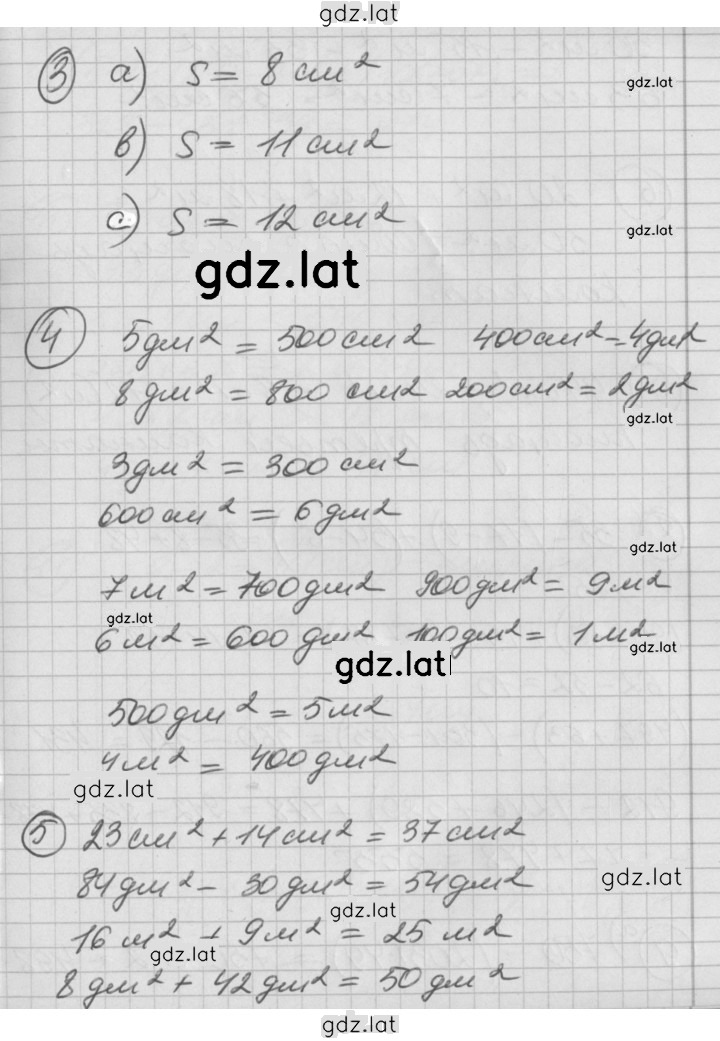 gdz.lat
3 a) S = 8 см²
gdz.lat
b) S = 11 см²
c) S = 12 см²
gdz.lat
gdz.lat
4 5 дм² = 500 см² 400 см² = 4 дм²
8 дм² = 800 см² 200 см² = 2 дм²
gdz.lat
3 дм² = 300 см²
600 см² = 6 дм²
gdz.lat
7 м² = 700 дм² 900 дм² = 9 м²
gdz.lat
6 м² = 600 дм² 100 дм² = 1 м²
gdz.lat
gdz.lat
500 дм² = 5 м²
4 м² = 400 дм²
gdz.lat
5 23 см² + 14 см² = 37 см²
84 дм² - 30 дм² = 54 дм²
gdz.lat
gdz.lat
16 м² + 9 м² = 25 м²
gdz.lat
8 дм² + 42 дм² = 50 дм²
gdz.lat